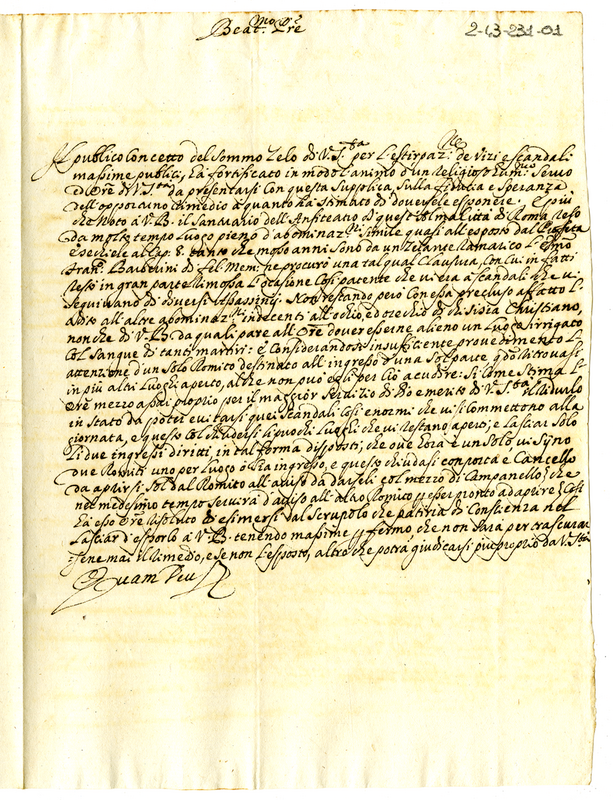 Beat.mo Pre
2-43-231-01
Il publico Concetto del Sommo Zelo di V. S.ta per l'estirpaz.ne de Vizi e scandali
massime publici, hà fortificato in modo l'animo d'un Religioso hum.mo Servo
di V. S.ta da presentarsi con questa supplica, sulla fiducia e speranza
dell'opportuno rimedio à quanto hà stimato di doversele esponere. E più
che noto à V. B. il Santuario dell'Anfiteatro di questo reso
da molto tempo luogo pieno d'abominaz.ni simile quasi all'esposto dal Profeta
Ezechiele al cap. 8. tanto che molti anni sono da un Zelante l'Emo
Fran. Barberini di fel. Mem. ne procurò una tal qual Clausura, con cui in fatti
restò in gran parte rimossa l'occasione così patente che vi era à scandali che vi
seguivano da diversi Non restando però con essa precluso affatto l'
adito all'altre abominaz.ni indecenti all'occhio, ed orecchio di chi sia Christiano,
non che di V. B. da quali pare all'Ore dover esserne alieno un Luogo irrigato
col sangue di tanti martiri: e Considerandosi insufficiente provedimento l'
attenzione d'un solo Romito destinato all'ingresso d'una sol parte, quando trovasi
in più altri Luoghi aperto, al che non può egli per ciò accudire: Sì come stima l'
Ore mezzo assai proprio per il maggior servizio di Dio e merito di V. S.ta il ridurlo
in stato da poter evitarsi quei scandali così enormi che vi si commettono alla
giornata, e questo col chiudersi li pochi Luoghi che vi restano aperti, e lasciar solo
li due ingressi diritti, in tal forma disposti, che ove hora è un solo vi siino
due Romiti uno per luogo ò sia ingresso, e questo chiudasi con porta è Cancello
da aprirsi sol dal Romito all'aviso da darseli col mezzo di Campanello, che
nel medesimo tempo servirà d'aviso all'altro Romito per esser pronto ad aprire. Così
hà esso Ore risoluto di esimersi dal scrupolo che patiria di Conscienza nel
lasciar d'esporlo à V. B. tenendo massime per fermo che non sarà per trascurar-
sene mai il rimedio, e se non l'esposto, altro che potrà giudicarsi più proprio da V. S.tà
Quam Deus